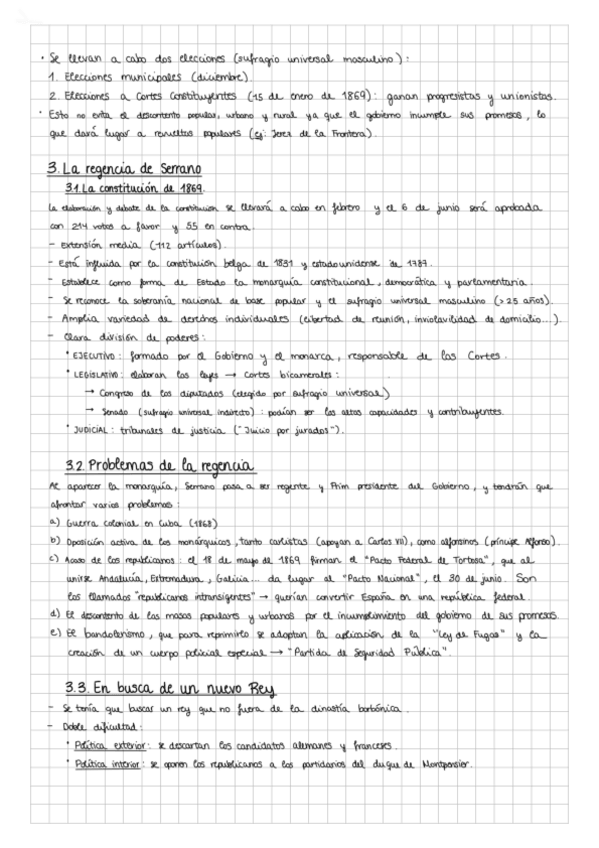 · Se llevan a cabo dos elecciones (sufragio universal masculino):
1. Elecciones municipales (diciembre)
2. Elecciones a Cortes Constituyentes (15 de enero de 1869): ganan progresistas y unionistas.
· Esto no evita el descontento popular, urbano y rural ya que el gobierno incumple sus promesas, lo
que dará lugar a revueltas populares (ej: Jerez de la Frontera).
3. La regencia de Serrano
3.1. La constitución de 1869.
La elaboración y debate de la constitución se llevará a cabo en febrero y el 6 de junio será aprobada
con 214 votos a favor y 55 en contra.
- Extensión media (112 artículos).
- Está influida por la constitución belga de 1831 y estadounidense de 1787.
- Establece como forma de Estado la monarquía constitucional, democrática y parlamentaria.
- Se reconoce la soberanía nacional de base popular y el sufragio universal masculino (>25 años).
- Amplia variedad de derechos individuales (libertad de reunión, inviolavilidad de domicilio...).
- Clara división de poderes:
· EJECUTIVO: formado por el Gobierno y el monarca, responsable de las Cortes.
· LEGISLATIVO: elaboran las leyes → Cortes bicamerales:
→ Congreso de los diputados (elegido por sufragio universal)
→ Senado (sufragio universal indirecto): podían ser las altas capacidades y contribuyentes.
· JUDICIAL: tribunales de justicia ("Juicio por jurados").
3.2. Problemas de la regencia
Al aparecer la monarquía, Serrano pasa a ser regente y Prim presidente del Gobierno, y tendrán que
afrontar varios problemas:
a) Guerra colonial en Cuba (1868)
b) Oposición activa de los monárquicos, tanto carlistas (apoyan a Carlos VII), como alfonsinos (príncipe Alfonso).
c) Acoso de los republicanos: el 18 de mayo de 1869 firman el "Pacto Federal de Tortosa", que al
unirse Andalucía, Extremadura, Galicia... da lugar al "Pacto Nacional", el 30 de junio. Son
los llamados "republicanos intransigentes" → querían convertir España en una república federal.
d) El descontento de las masas populares y urbanas por el incumplimiento del gobierno de sus promesas.
e) El bandolerismo, que para reprimirlo se adoptan la aplicación de la "Ley de Fugas" y la
creación de un cuerpo policial especial → "Partida de Seguridad Pública".
3.3. En busca de un nuevo Rey
- Se tenía que buscar un rey que no fuera de la dinastía borbónica.
- Doble dificultad:
· Política exterior: se descartan los candidatos alemanes y franceses.
· Política interior: se oponen los republicanos a los partidarios del duque de Montpensier.